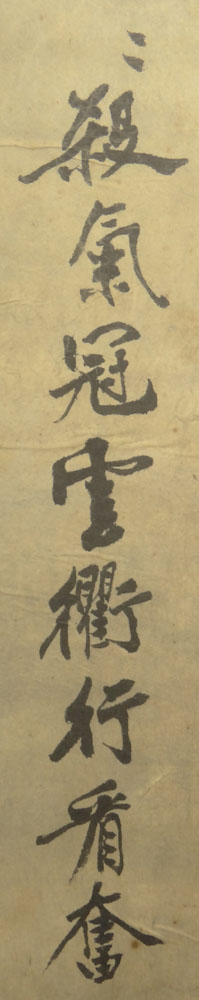 〻殺氣冠雲衢行看奮